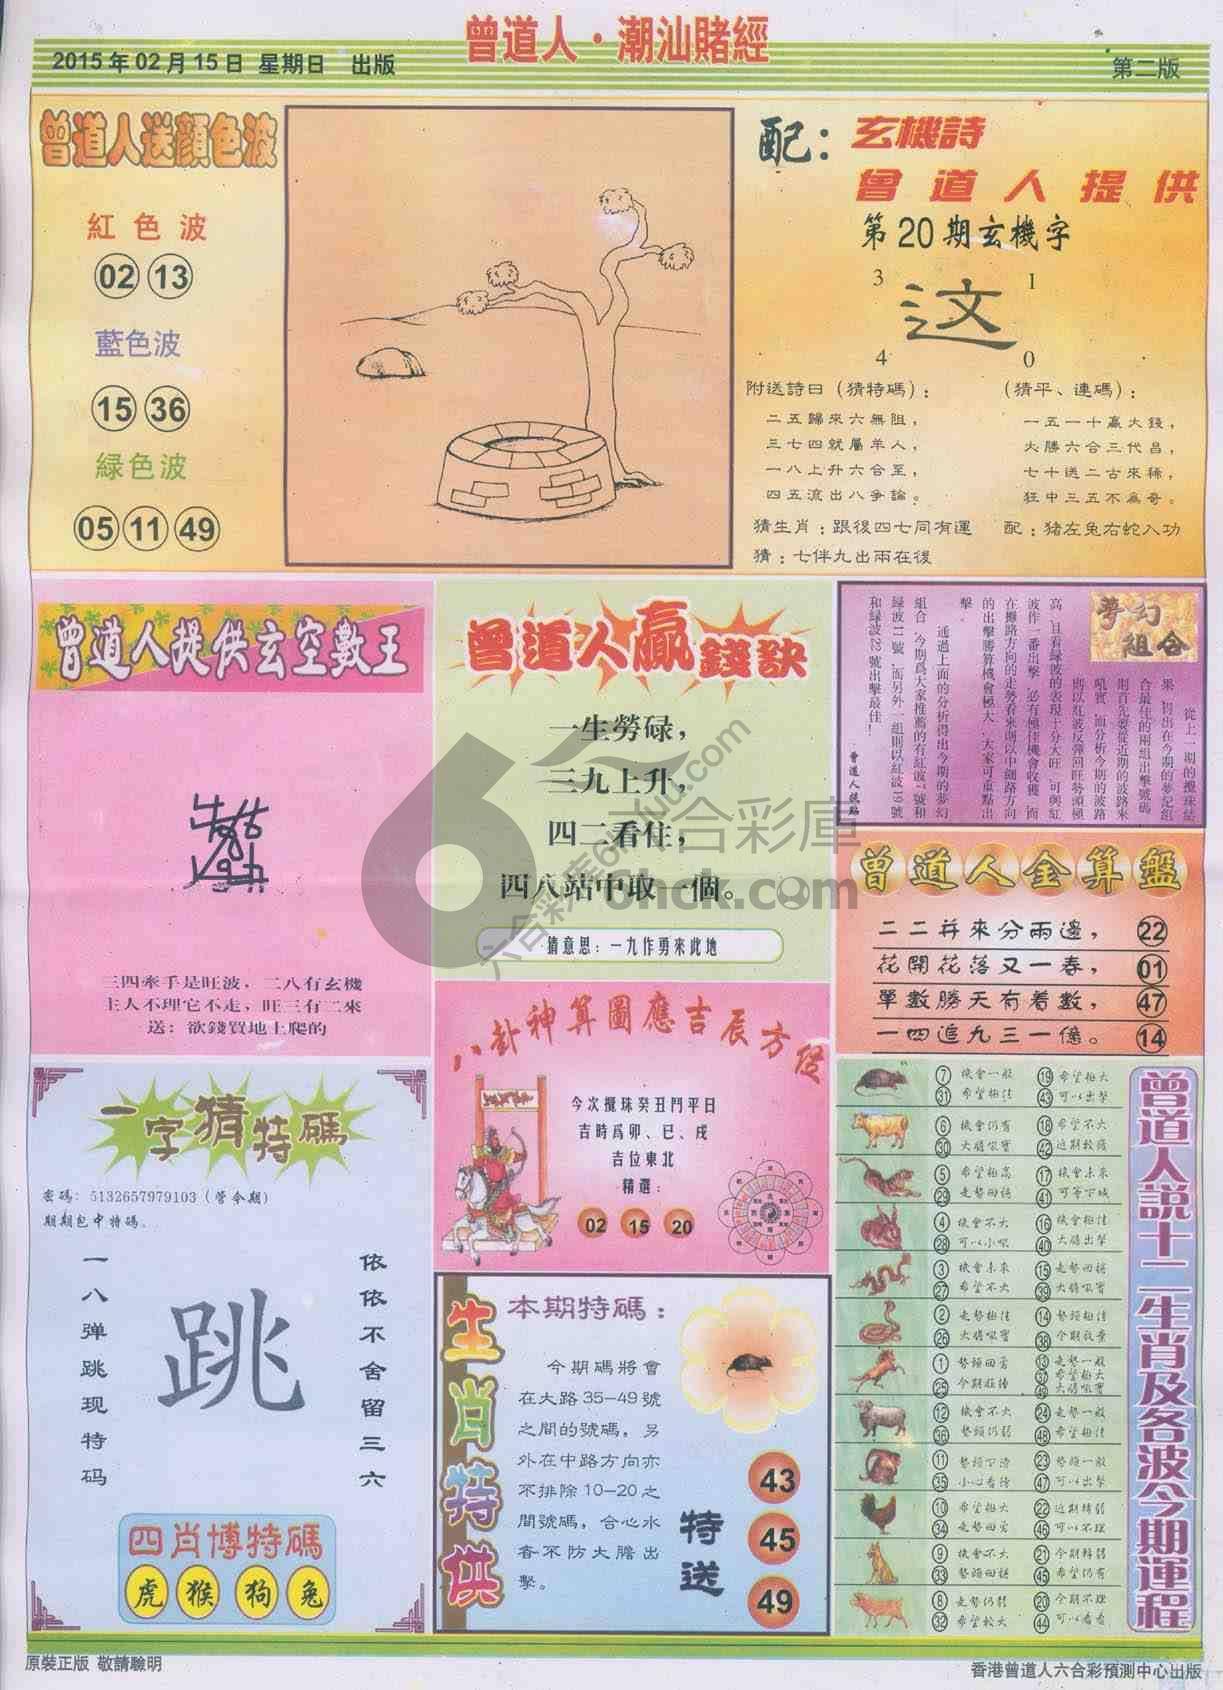 曾道人·潮汕賭經
2015年02月15日 星期日 出版
第二版
曾道人送顏色波
紅色波
02 13
藍色波
15 36
緑色波
05 11 49
配：
玄機詩
曾道人提供
第20期玄機字
3 1
这
4 0
附送詩曰（猜特碼）：
二五歸來六無阻，
三七四就屬羊人，
一八上升六合至，
四五流出八爭論。
（猜平、連碼）：
一五一十贏大錢，
火勝六合三代昌，
七十送二古來稀，
狂中三五不為奇。
猜生肖：跟後四七同有運
配：猪左兔右蛇入功
猜：七伴九出兩在後
曾道人提供玄空數王
三四牽手是旺波，二八有玄機
主人不理它不走，旺三有二來
送：欲錢買地上爬的
曾道人贏錢訣
一生勞碌，
三九上升，
四二看住，
四八站中取一個。
猜意思：一九作勇來此地
夢幻
組合
從上一期的攪珠結
果，
合最佳的兩組出擊號碼
則首先要從近期的波路來
則以紅波反彈回旺勢頭極
高，且看緑波的表現十分大旺，可與紅
波作一番出擊，必有極佳機會收穫，而
在攤路方向的走勢看來則以中細路方向
的出擊勝算機會極大，大家可重點出
擊。
通過上面的分析得出今期的夢幻
組合，今期爲大家推薦的有紅波
緑波11號，而另外一組則以紅波19號
和緑波22號出擊最佳！
曾道人金算盤
二二并來分兩邊， 22
花開花落又一春， 01
單數勝天有着數， 47
一四追九三一億。 14
八卦神算圖應吉辰方位
今次攪珠癸丑鬥平日
吉時爲卯、巳、戌
吉位東北
精選：
02 15 20
一字猜特碼
密碼：5132657979103（管令期）
期期包中特碼。
一八弹跳现特码
跳
依依不舍留三六
四肖博特碼
虎 猴 狗 兔
生肖特供
本期特碼：
今期碼將會
在大路35—49號
之間的號碼，另
外在中路方向亦
不排除10—20之
間號碼，合心水
者不防大膽出
擊。
特送
43
45
49
曾道人説十二生肖及各波今期運程
7 機會一般 19 希望極大
31 希望極佳 43 可以出擊
6 機會仍有 18 希望不大
30 大膽吸寶 42 近期較弱
5 希望極高 17 機會未來
29 走勢回穩 41 可等下城
4 機會不大 16 機會極佳
28 可以小吸 40 大膽出擊
3 機會未來 15 走勢回穩
27 希望不大 39 大膽吸寶
2 走勢極佳 14 勢頭極佳
26 大膽吸寶 38 今期放棄
1 勢頭回勇 13 走勢一般
37 希望極大
25 今期旺待 49 大膽吸寶
12 機會不大 24 走勢一般
36 勢頭仍弱 48 希望極佳
11 勢頭下滑 23 勢頭一般
35 小心看待 47 可以出擊
10 希望極大 22 近期轉弱
34 走勢回勇 46 可以不理
9 機會不大 21 今期轉弱
33 勢頭回穩 45 希望仍有
8 走勢仍弱 20 今期不理
32 希望極大 44 可以看看
原裝正版 敬請驗明
香港曾道人六合彩預測中心出版
六合彩庫
6hck.com